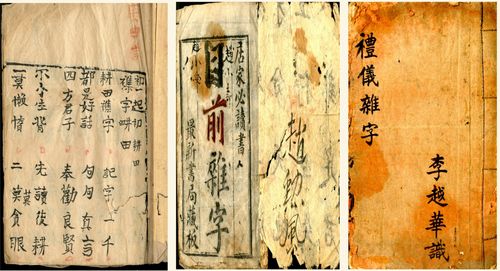 襍字耕田
耕田襍字 記字一千
都是好話 句句真言
四方君子 奉勸良賢
先讀後耕
一莫懶惰 二莫貪眠
居家必讀書
目前雜字
最新書局藏板
趙
禮儀雜字
李越華識